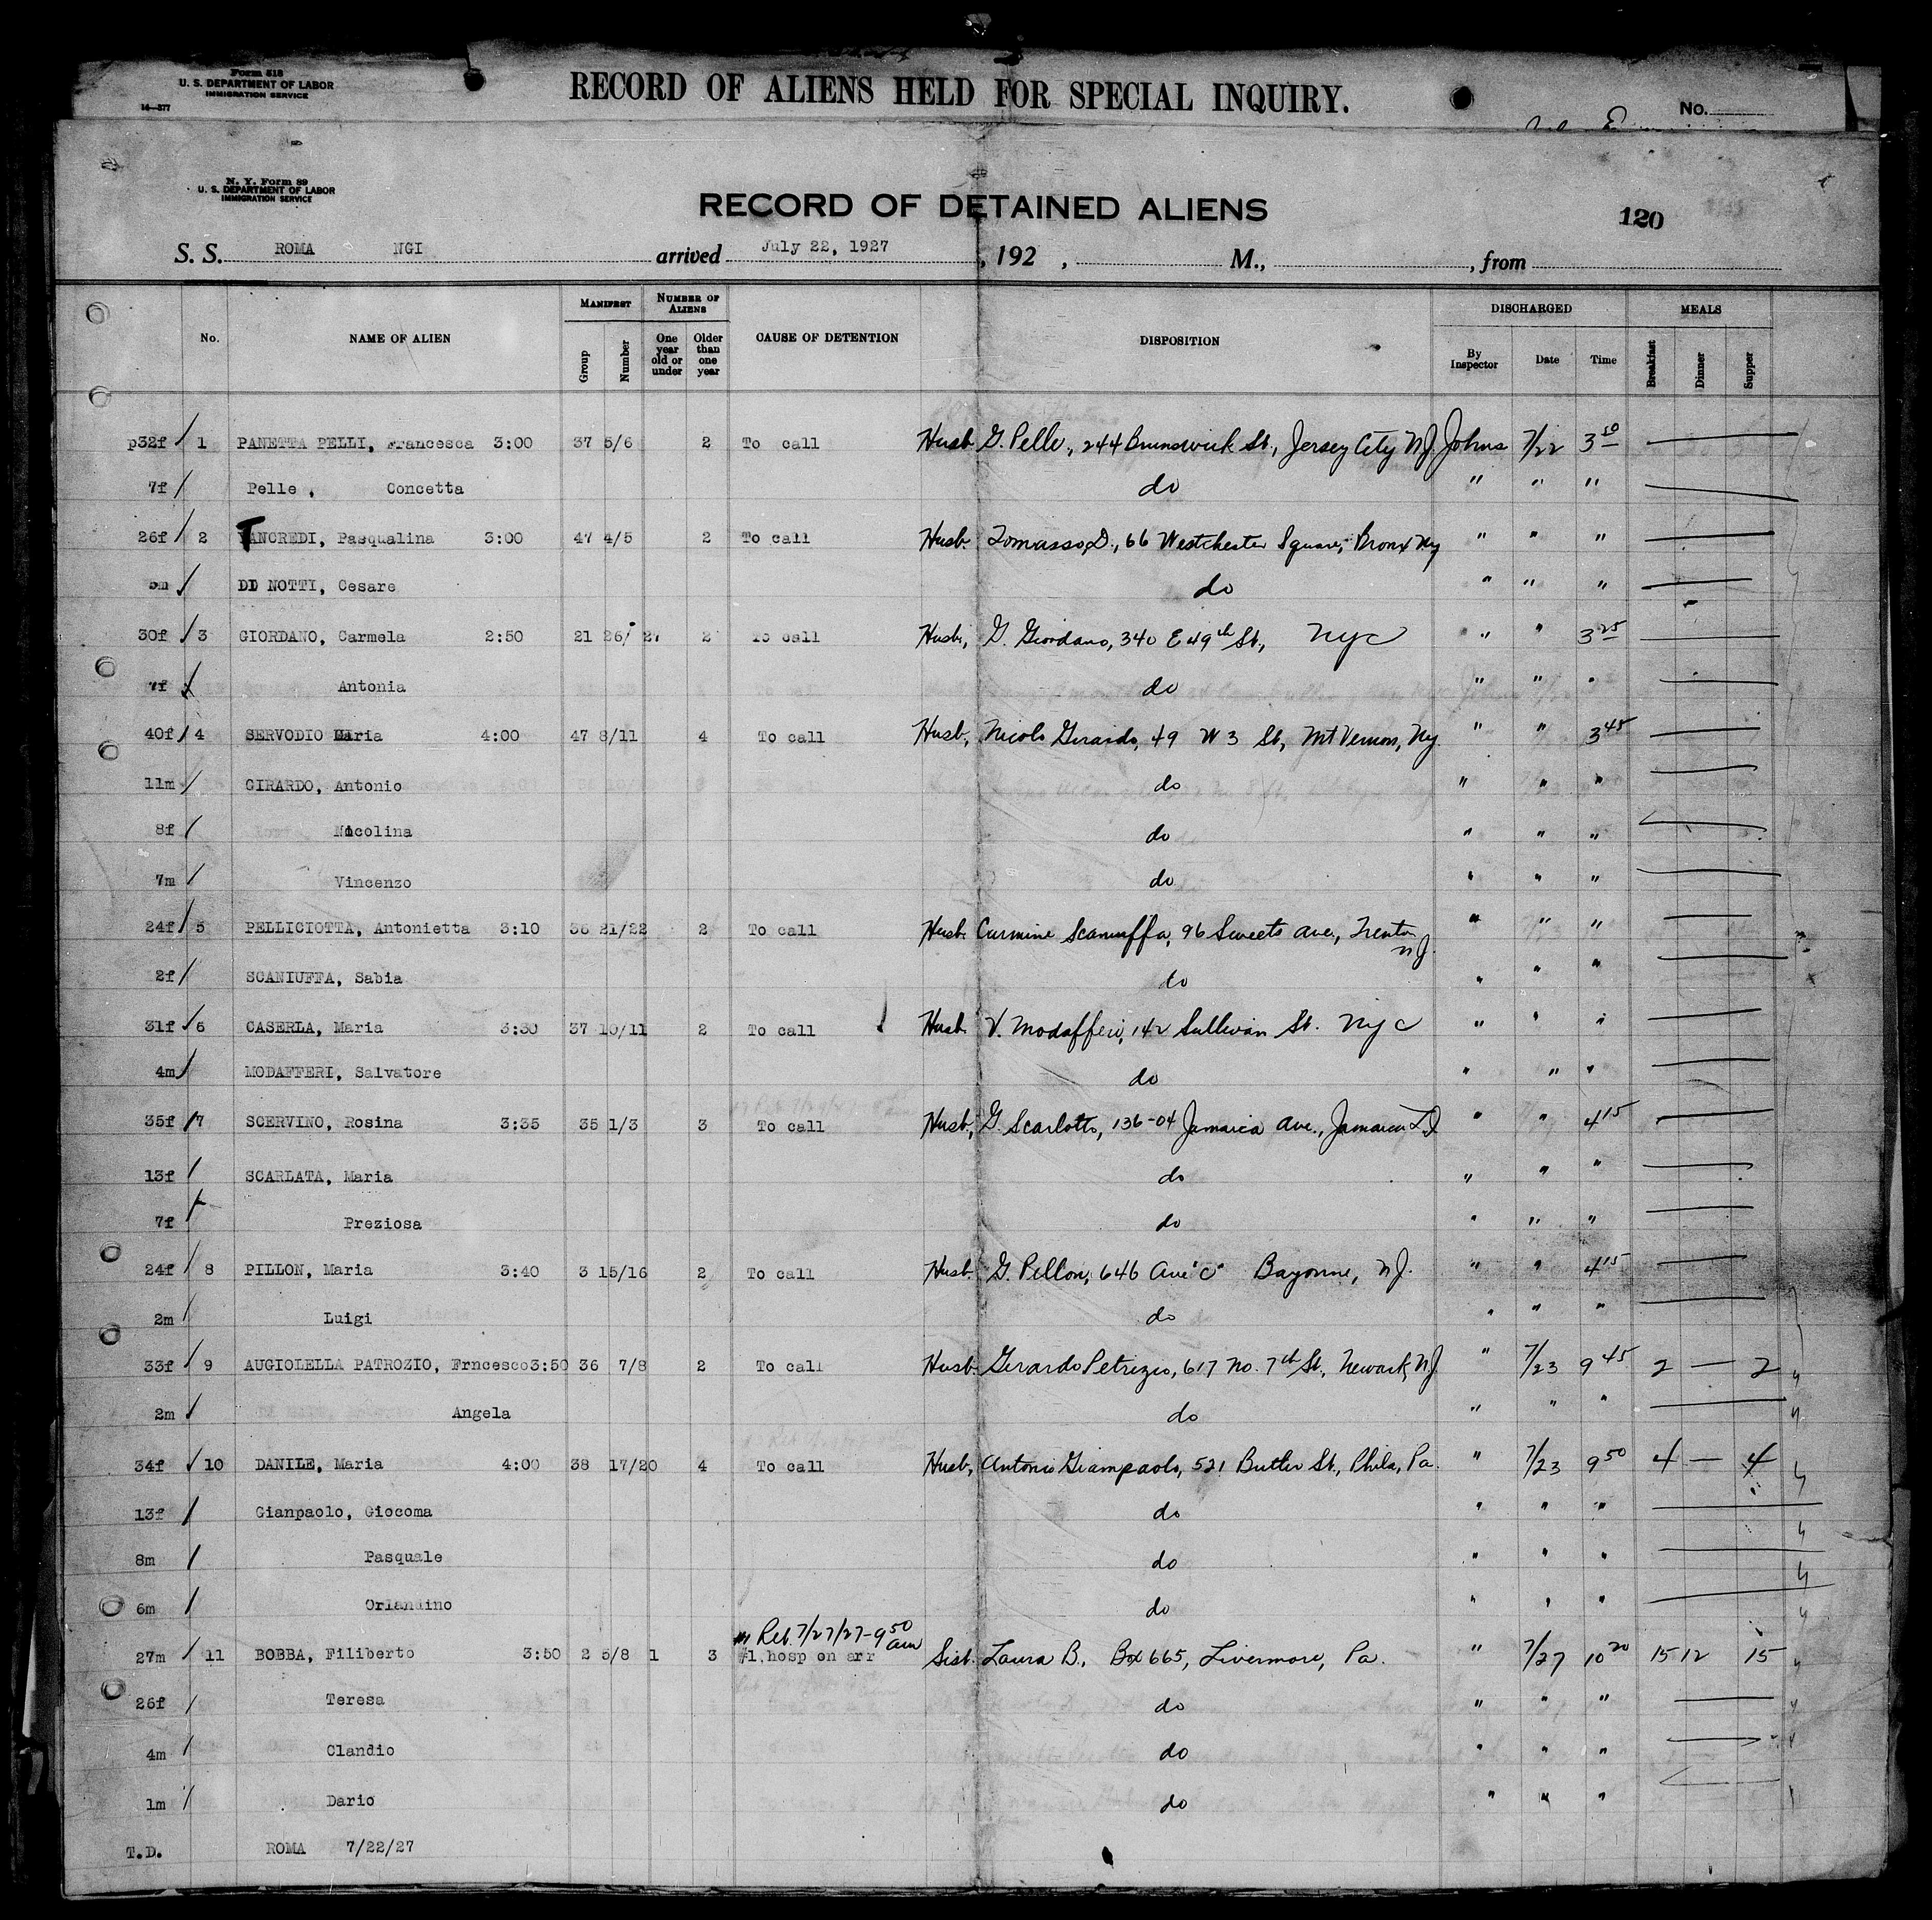 Form 518
U. S. DEPARTMENT OF LABOR
IMMIGRATION SERVICE
14—377
RECORD OF ALIENS HELD FOR SPECIAL INQUIRY.
No.
N. Y. Form 89
U. S. DEPARTMENT OF LABOR
IMMIGRATION SERVICE
RECORD OF DETAINED ALIENS
120
S. S. ROMA NGI arrived July 22, 1927 , 192 , M., , from
No. NAME OF ALIEN MANIFEST Group Number NUMBER OF ALIENS One year old or under Older than one year CAUSE OF DETENTION DISPOSITION DISCHARGED By Inspector Date Time MEALS Breakfast Dinner Supper
p32f / 1 PANETTA PELLI, Francesca 3:00 37 5/6 2 To call Husb. G. Pelle, 244 Brunswick St., Jersey City N.J. Johns 7/22 3 50
7f / Pelle, Concetta do " " "
26f / 2 TANCREDI, Pasqualina 3:00 47 4/5 2 To call Husb. Tomasso D., 66 Westchester Square, Bronx Ny " " "
5m / DI NOTTI, Cesare do " " "
30f / 3 GIORDANO, Carmela 2:50 21 26/27 2 To call Husb, G. Giordano, 340 E 49th St., NYC " " 3 25
7f / Antonia do " " "
40f / 4 SERVODIO Maria 4:00 47 8/11 4 To call Husb, Nicolo Gerardo, 49 W 3 St, Mt Vernon, Ny. " " 3 45
11m / GIRARDO, Antonio do " " "
8f / Nicolina do " " "
7m / Vincenzo do " " "
24f / 5 PELLICIOTTA, Antonietta 3:10 36 21/22 2 To call Husb. Carmine Scanuffa, 96 Sweets Ave, Trenton " " "
N.J.
2f / SCANIUFFA, Sabia do " " "
31f / 6 CASERLA, Maria 3:30 37 10/11 2 To call Husb V. Modafferi, 142 Sullivan St. NYC " " "
4m / MODAFFERI, Salvatore do " " "
35f / 7 SCERVINO, Rosina 3:35 35 1/3 3 To call Husb, G. Scarlotto, 136-04 Jamaica Ave., Jamaica L.I. " " 4 15
13f / SCARLATA, Maria do " " "
7f / Preziosa do " " "
24f / 8 PILLON, Maria 3:40 3 15/16 2 To call Husb. G. Pellon, 646 Ave "C" Bayonne, N.J. " " 4 15
2m / Luigi do " " "
33f / 9 AUGIOLELLA PATROZIO, Frncesco 3:50 36 7/8 2 To call Husb. Gerardo Petrizio, 617 No. 7th St, Newark N.J. " 7/23 9 45 2 — 2
2m / Angela do " " "
34f / 10 DANILE, Maria 4:00 38 17/20 4 To call Husb, Antonio Giampaolo, 521 Butler St, Phila, Pa. " 7/23 9 50 4 — 4
13f / Gianpaolo, Giocoma do " " "
8m / Pasquale do " " "
6m / Orlandino do " " "
Reb. 7/27/27-9 50 am
27m / 11 BOBBA, Filiberto 3:50 2 5/8 1 3 #1 hosp on arr Sist. Laura B., Box 665, Livermore, Pa. " 7/27 10 20 15 12 15
26f / Teresa do " " "
4m / Clandio do " " "
1m / Dario do " " "
T.D. ROMA 7/22/27